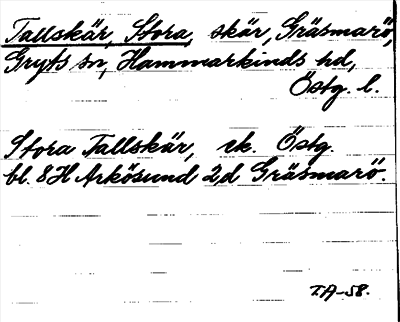 Tallskär, Stora, skär, Gräsmarö,
Gryts sn, Hammarkinds hd,
Östg. l.
Stora Tallskär, ek. Östg.
bl. 8H Arkösund 2d Gräsmarö.
I.A-58.